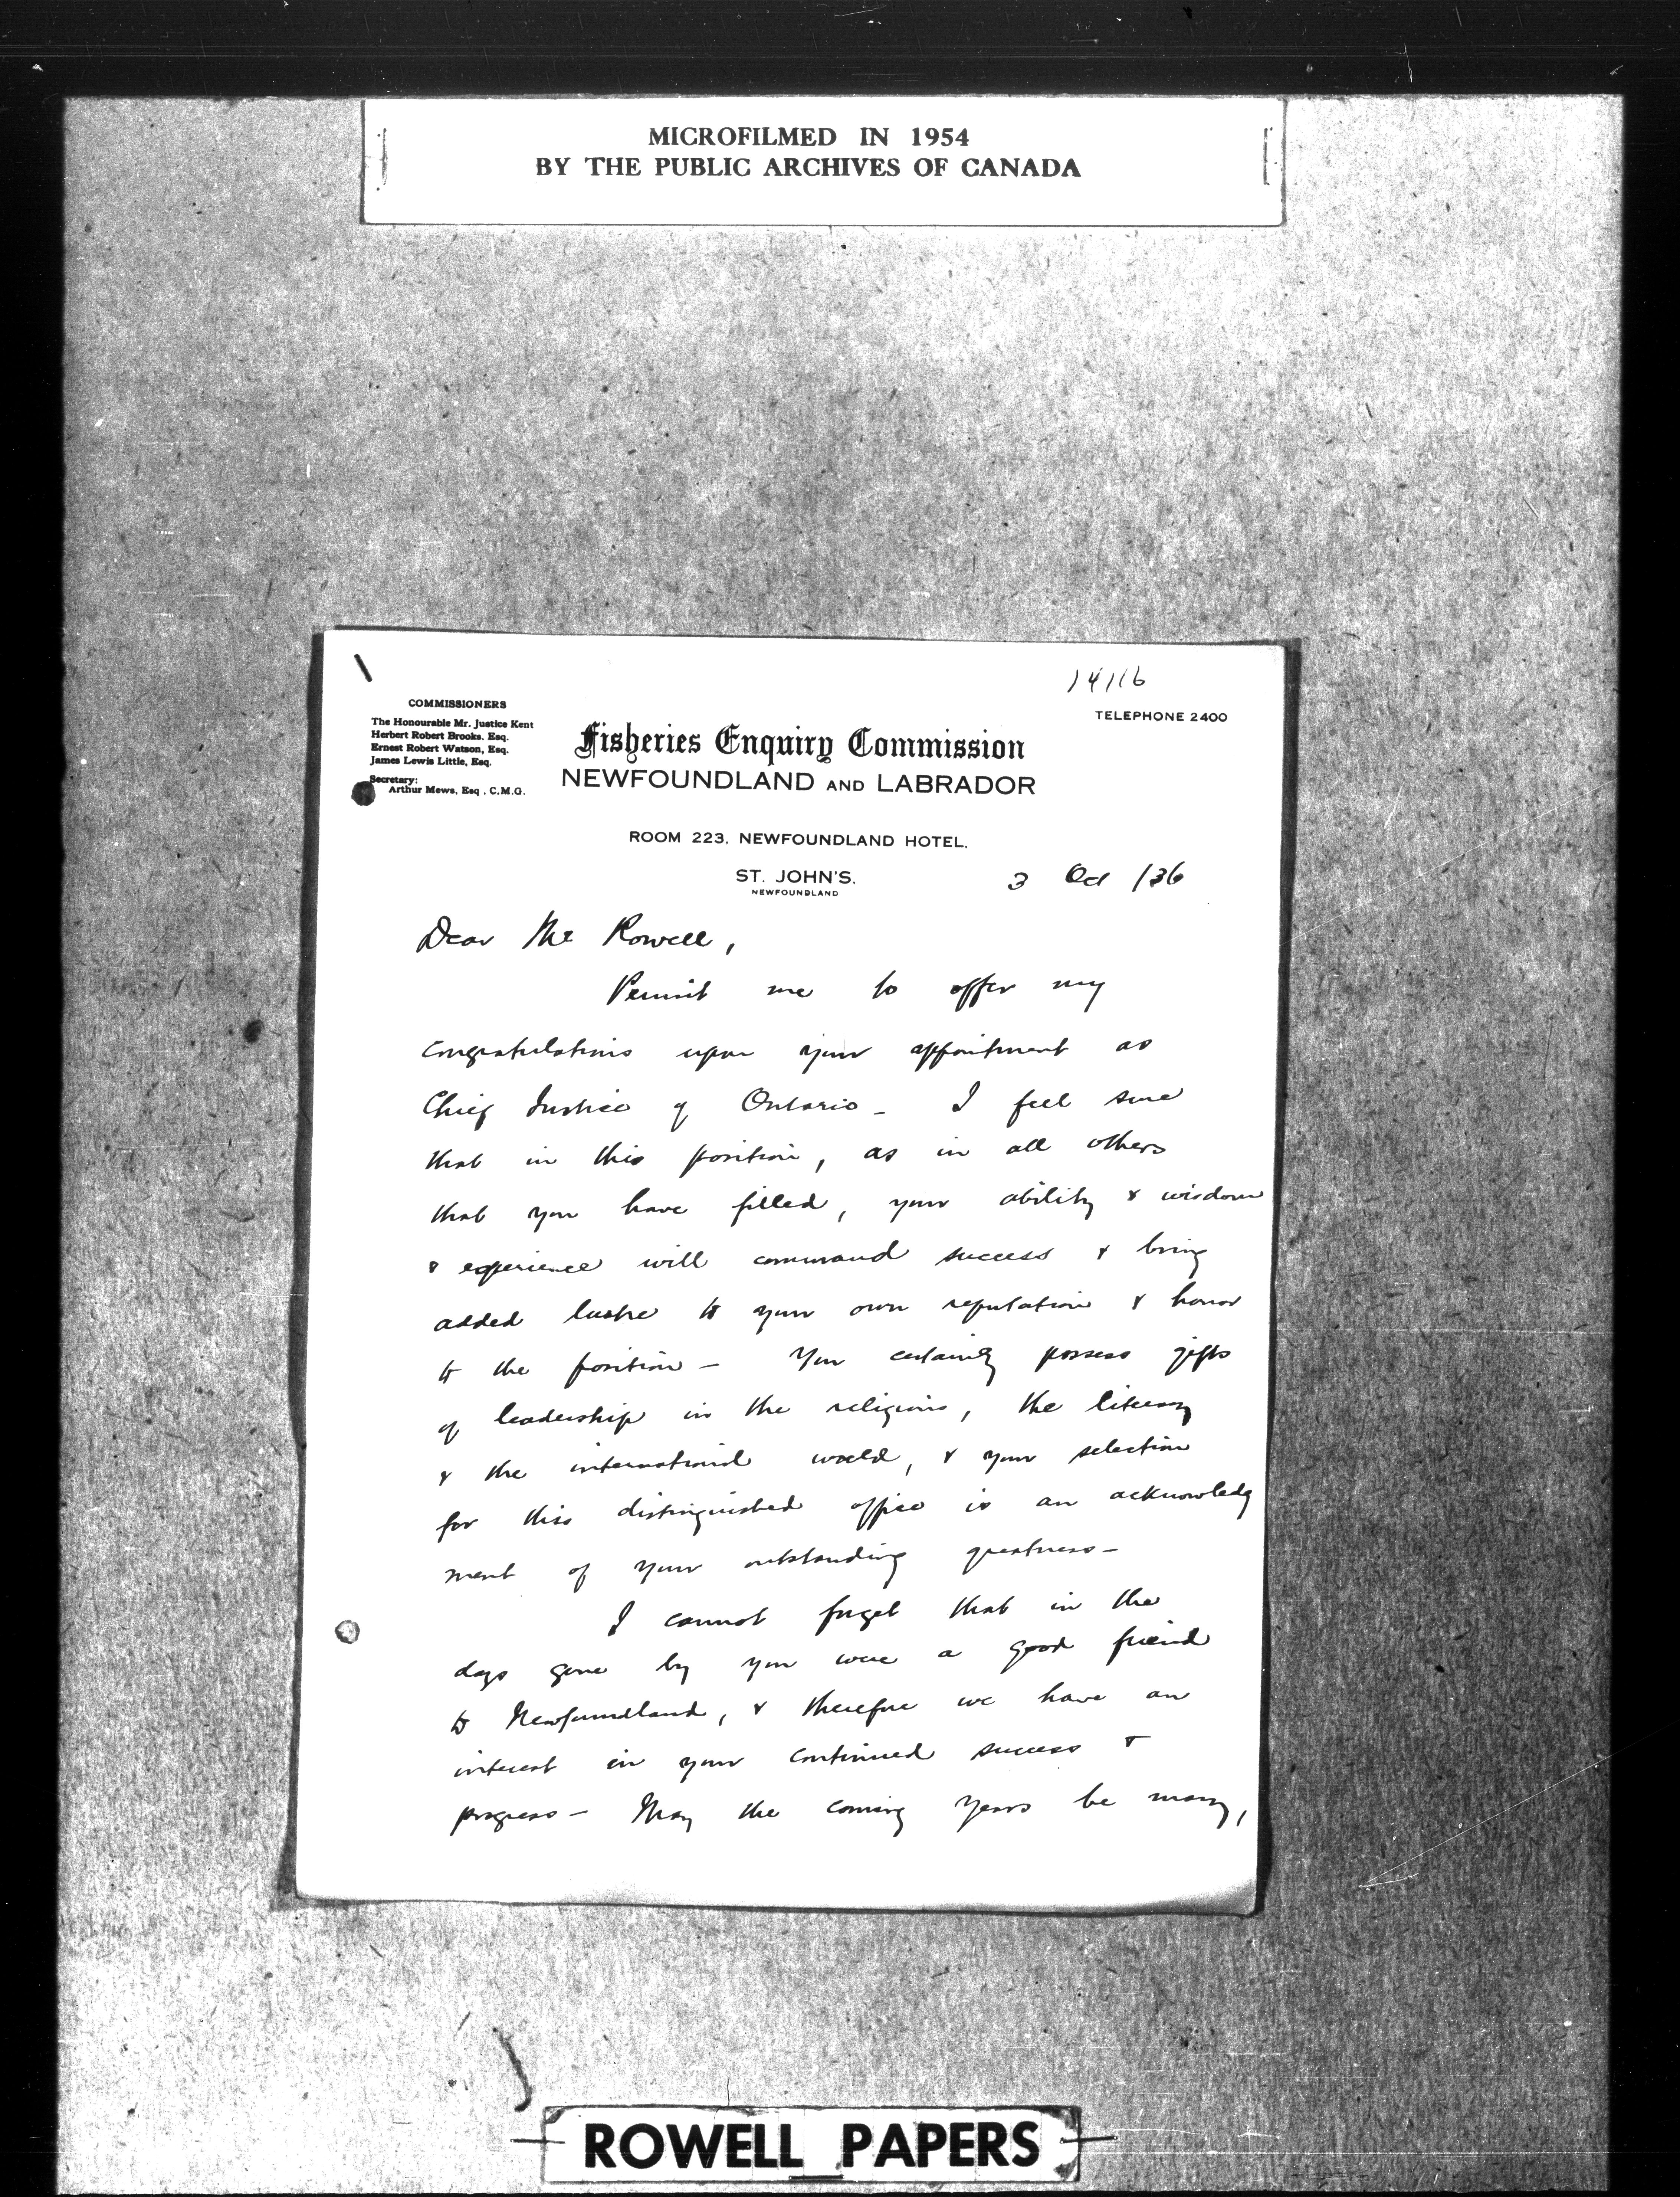 MICROFILMED IN 1954
BY THE PUBLIC ARCHIVES OF CANADA
14116
TELEPHONE 2400
COMMISSIONERS
The Honourable Mr. Justice Kent
Herbert Robert Brooks, Esq.
Ernest Robert Watson, Esq.
James Lewis Little, Esq.
Secretary:
Arthur Mews, Esq., C.M.G.
Fisheries Enquiry Commission
NEWFOUNDLAND AND LABRADOR
ROOM 223, NEWFOUNDLAND HOTEL,
ST. JOHN'S,
NEWFOUNDLAND
3 Oct /36
Dear Mr Rowell,
Permit me to offer my
congratulations upon your appointment as
Chief Justice of Ontario - I feel sure
that in this position, as in all others
that you have filled, your ability & wisdom
& experience will command success & bring
added lustre to your own reputation & honor
to the position - You certainly possess gifts
of leadership in the religious, the literary
& the international world, & your selection
for this distinguished office is an acknowledg
ment of your outstanding greatness -
I cannot forget that in the
days gone by you were a good friend
to Newfoundland, & therefore we have an
interest in your continued success &
progress - May the coming years be many,
ROWELL PAPERS